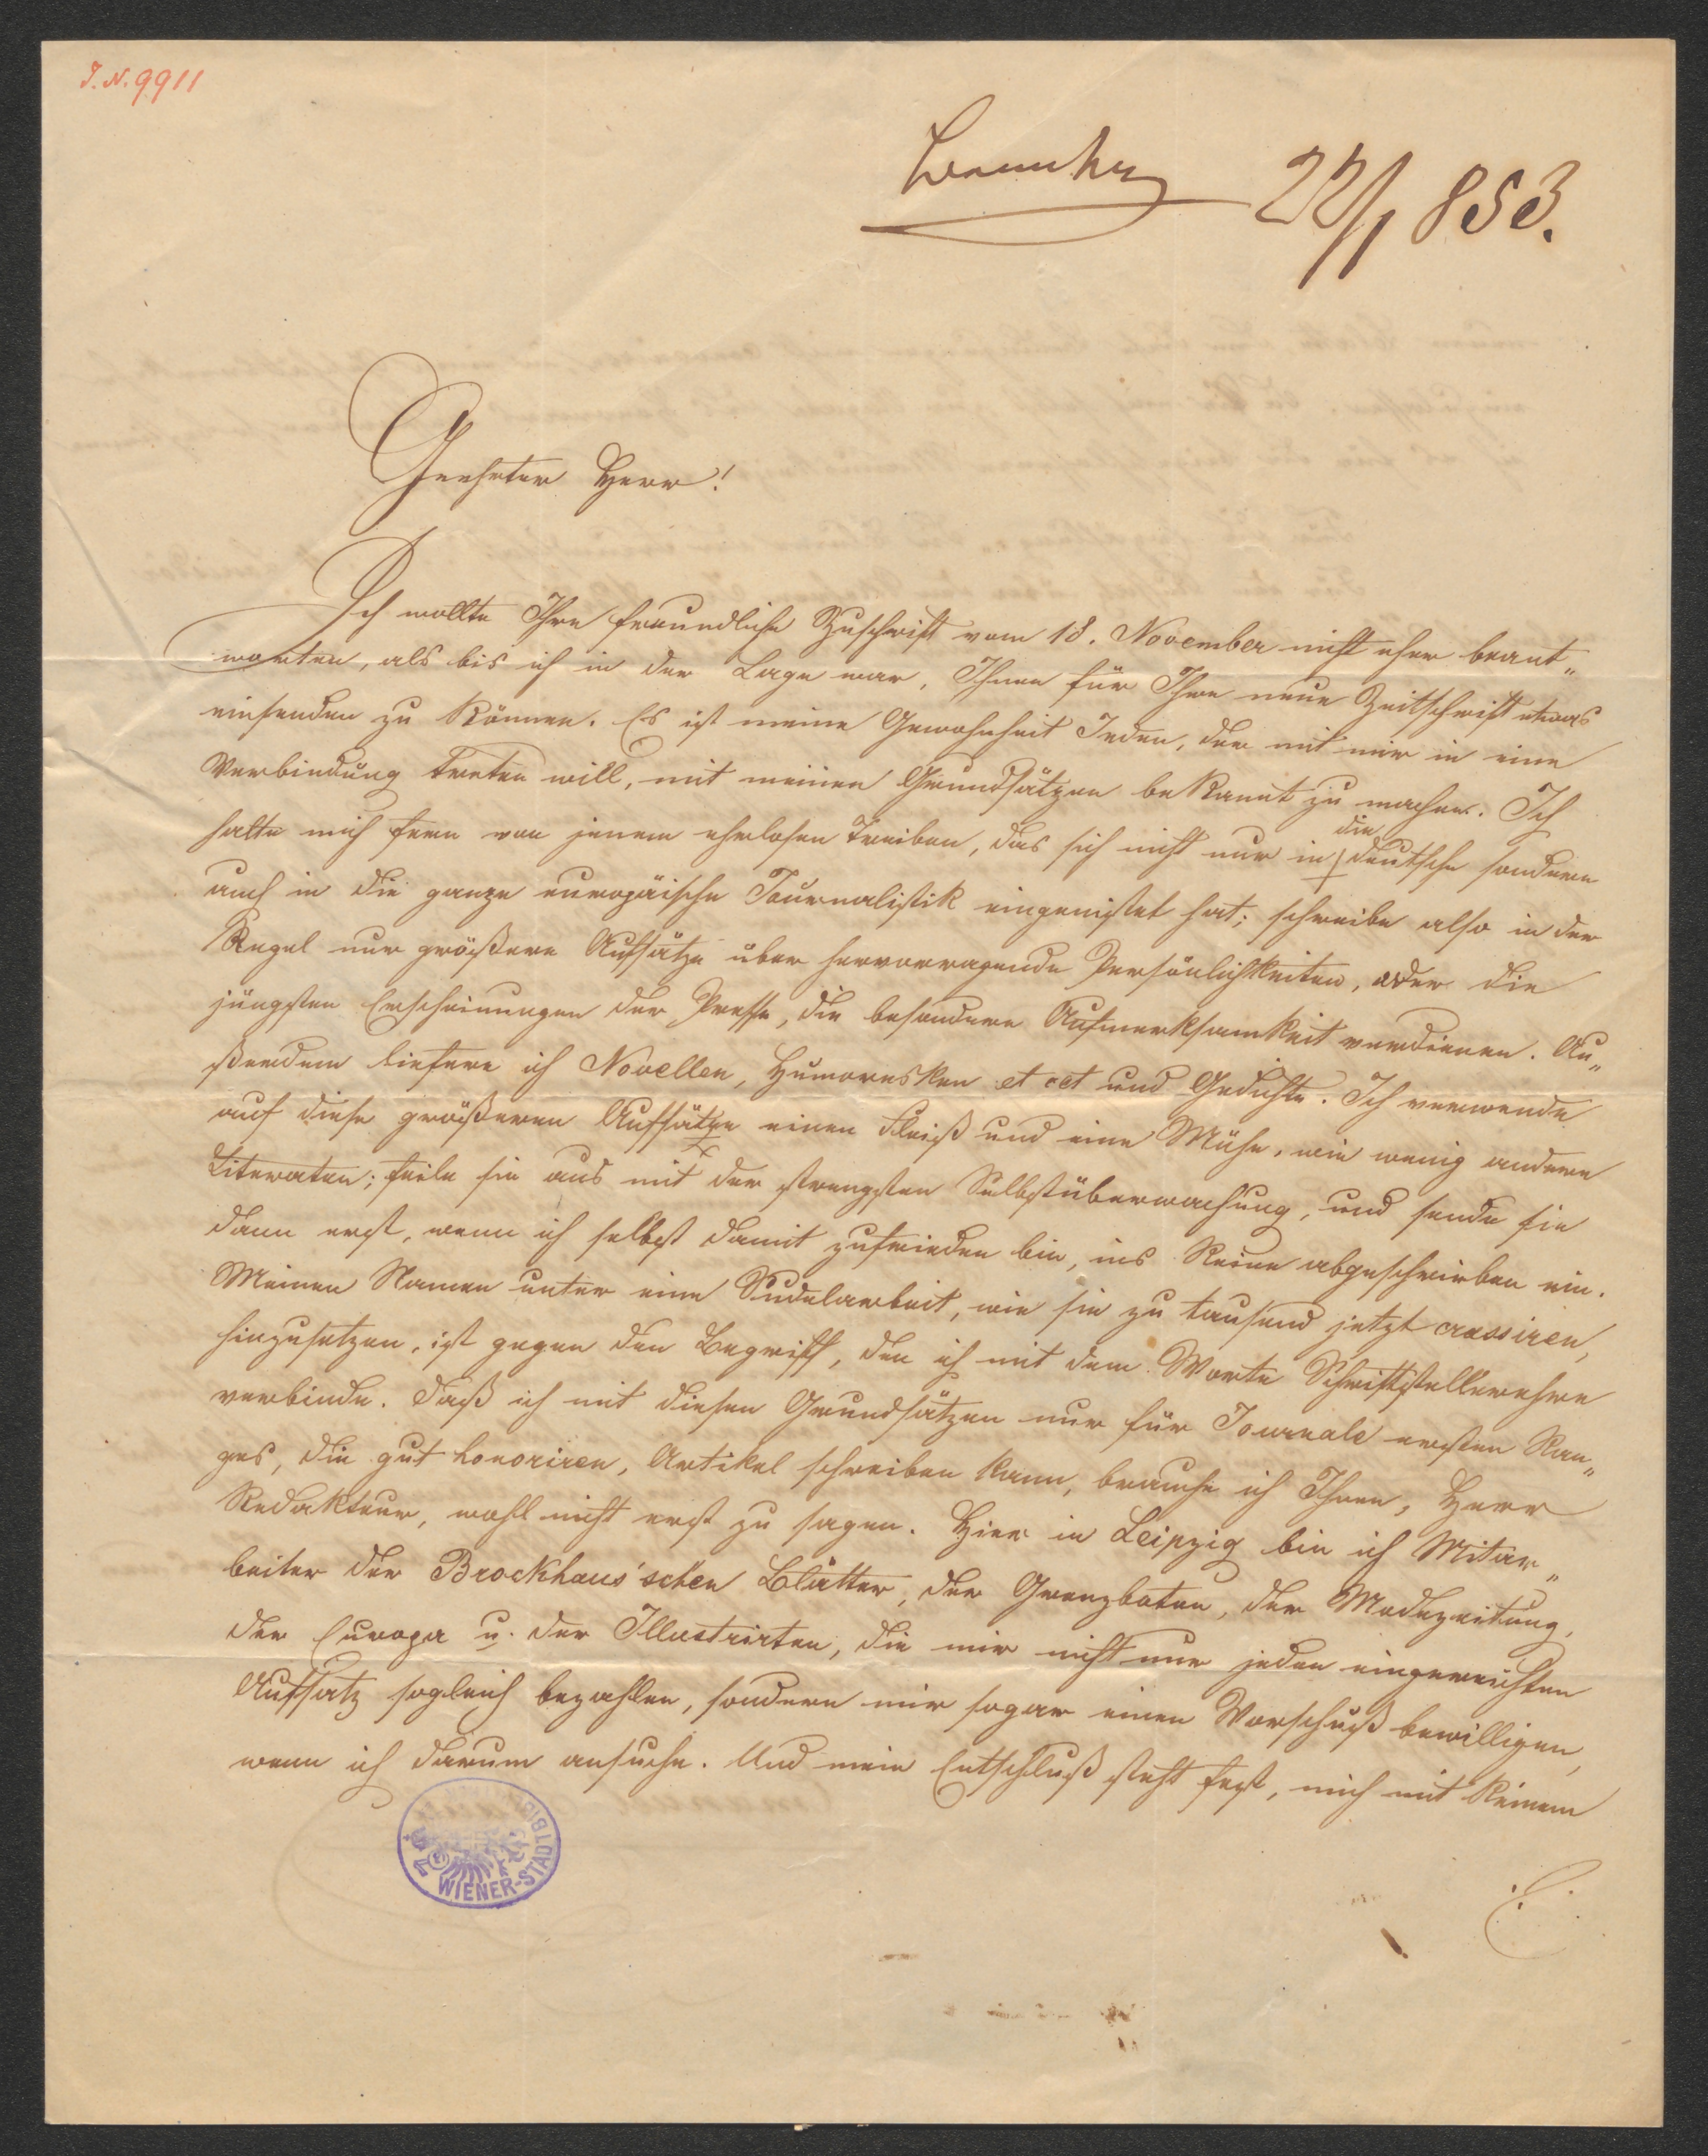 I. N. 9911
22/1 853.
Geehrter Herr!
Ich wollte Ihre freundliche Zuschrift vom 18. November nicht eher beant„
worten, als bis ich in der Lage war, Ihnen für Ihre neue Zeitschrift etwas
einsenden zu können. Es ist meine Gewohnheit Jeden, der mit mir in eine
Verbindung treten will, mit meinen Grundsätzen bekannt zu machen. Ich
halte mich fern von jenem ehrlosen Treiben, das sich nicht nur in die deutsche sondern
auch in die ganze europäische Journalistik eingenistet hat; schreibe also in der
Regel nur größere Aufsätze über hervorragende Persönlichkeiten, oder die
jüngsten Erscheinungen der Presse, die besondere Aufmerksamkeit verdienen. Au„
ßerdem liefere ich Novellen, Humoresken et cet und Gedichte. Ich verwende
auf diese größeren Aufsätze einen Fleiß und eine Mühe, wie wenig andere
Literaten; feile sie aus mit der strengsten Selbstüberwachung, und sende sie
dann erst, wenn ich selbst damit zufrieden bin, ins Reine abgeschrieben ein.
Meinen Namen unter eine Sudelarbeit, wie sie zu tausend jetzt crassiren,
hinzusetzen, ist gegen den Begriff, den ich mit dem Worte Schriftstellerehre
verbinde. Daß ich mit diesen Grundsätzen nur für Journale ersten Ran„
ges, die gut honoriren, Artikel schreiben kann, brauche ich Ihnen, Herr
Redakteur, wohl nicht erst zu sagen. Hier in Leipzig bin ich Mitar„
beiter der Brockhaus'schen Blätter, der Grenzboten, der Modezeitung,
der Europa u. der Illustrirten, die mir nicht nur jeden eingereichten
Aufsatz sogleich bezahlen, sondern mir sogar einen Vorschuß bewilligen,
wenn ich darum ansuche. Und mein Entschluß steht fest, mich mit keinem
WIENER-STADTBIB